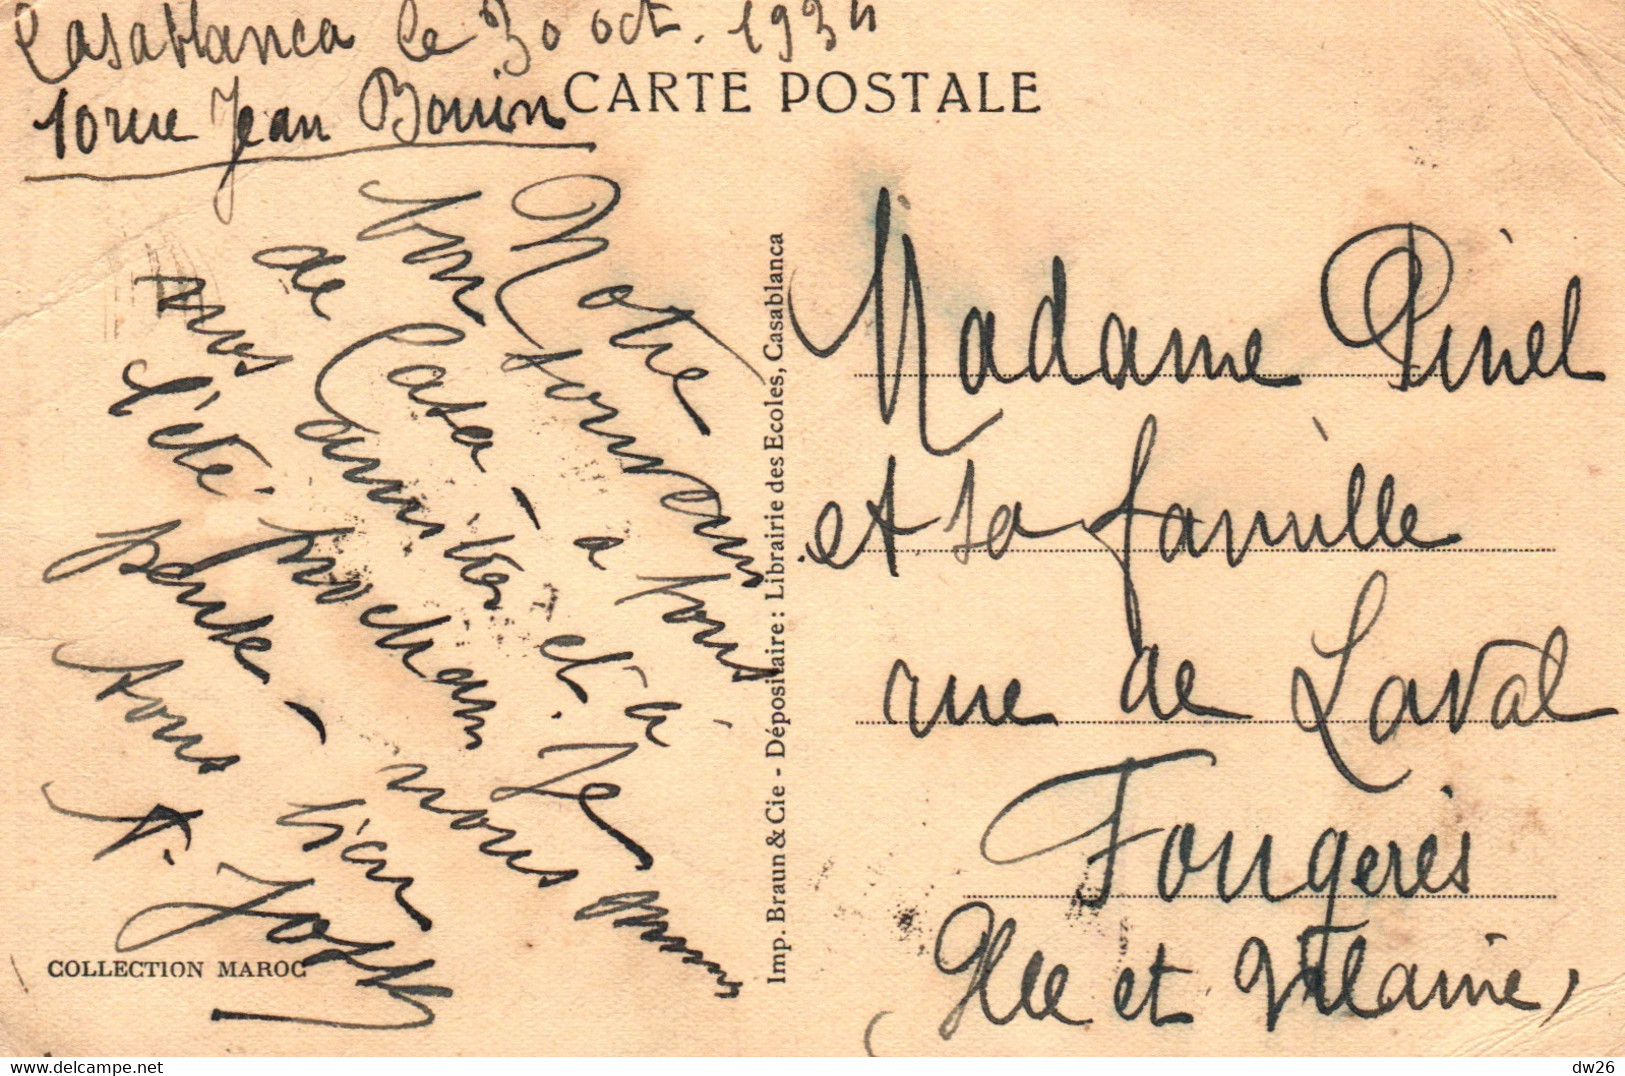 Casablanca le 30 oct. 1934
10 rue Jean Bouin
CARTE POSTALE
Notre
bon souvenir
de Casa - à tous
nos amitiés et à
l'été prochain. Je
pense - nous
tous bien
T. Joseph
Imp. Braun & Cie - Dépositaire : Librairie des Ecoles, Casablanca
Madame Pinel
et sa famille
rue de Laval
Fougères
Ille et Vilaine
COLLECTION MAROC
dw26